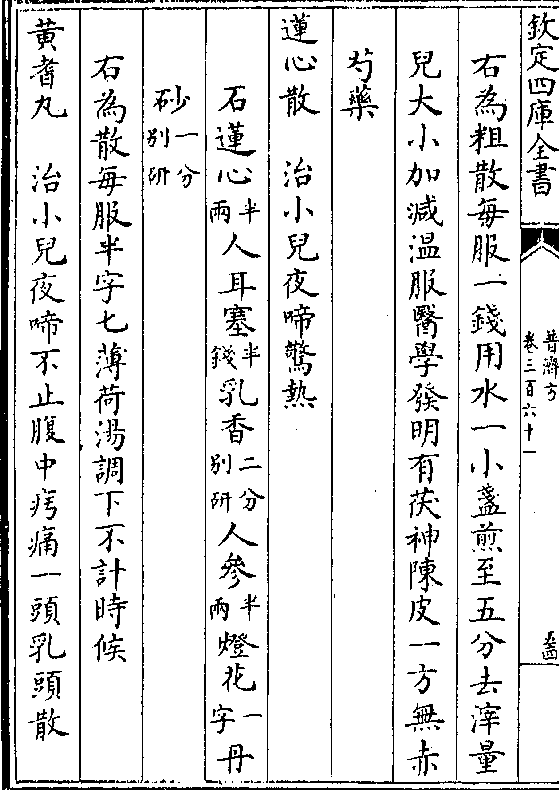 欽定四庫全書
普濟方
卷三百六十一
右為粗散每服一錢用水一小盞煎至五分去滓量
兒大小加減温服醫學發明有茯神陳皮一方無赤
芍藥
蓮心散　治小兒夜啼驚熱
石蓮心半兩人耳塞半錢乳香二分别研人參半兩燈花一字丹
砂一分别研
右為散每服半字匕薄荷湯調下不計時候
黄耆丸　治小兒夜啼不止腹中疞痛一頭乳頭散